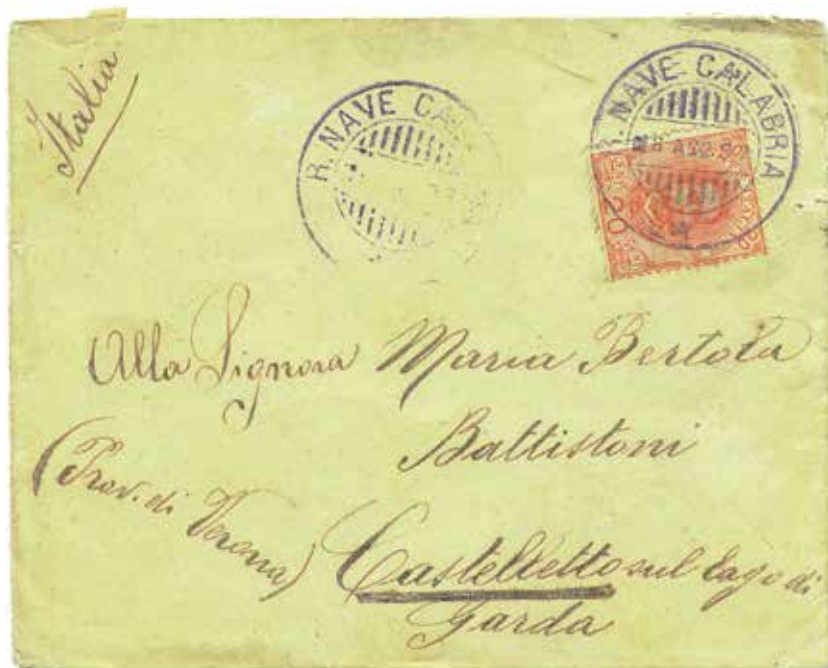 Italia
R. NAVE CAL
R. NAVE CALABRIA
20
Alla Signora Maria Bertola
Battistoni
(Prov. di Verona)
Castelletto sul lago di
Garda